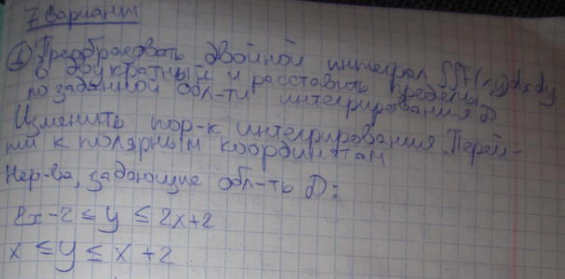 7 вариант
① Преобразовать двойной интеграл ∬f(x,y)dxdy
в двукратный и расставить пределы
по заданной обл-ти интегрирования D
Изменить пор-к интегрирования. Перей-
ти к полярным координатам
Нер-ва, задающие обл-ть D:
2x-2 ≤ y ≤ 2x+2
x ≤ y ≤ x+2